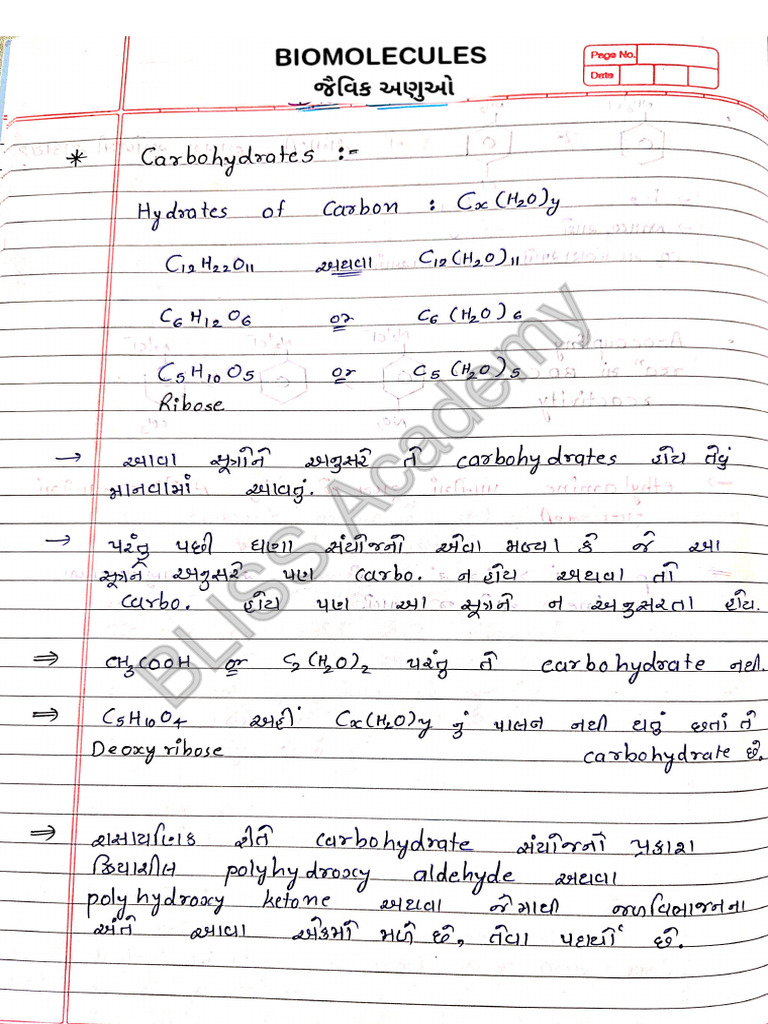 BIOMOLECULES
જૈવિક અણુઓ
Page No.
Date
* Carbohydrates :-
Hydrates of Carbon : Cx(H2O)y
C12H22O11 અથવા C12(H2O)11
C6H12O6 or C6(H2O)6
C5H10O5 or C5(H2O)5
Ribose
→ આવા સૂત્રોને અનુસરે તે carbohydrates હોય તેવું
માનવામાં આવતું.
→ પરંતુ પછી ઘણા સંયોજનો એવા મળ્યા કે જે આ
સૂત્રને અનુસરે પણ carbo. ન હોય અથવા તો
carbo. હોય પણ આ સૂત્રને ન અનુસરતા હોય.
⇒ CH3COOH or C2(H2O)2 પરંતુ તે carbohydrate નથી.
⇒ C5H10O4 અહીં Cx(H2O)y નું પાલન નથી થતું છતાં તે
Deoxyribose carbohydrate છે.
⇒ રાસાયણિક રીતે carbohydrate સંયોજનો પ્રકાશ
ક્રિયાશીલ polyhydroxy aldehyde અથવા
polyhydroxy ketone અથવા જેમાથી જળવિભાજનના
અંતે આવા એકમો મળે છે, તેવા પદાર્થો છે.
BLISS Academy